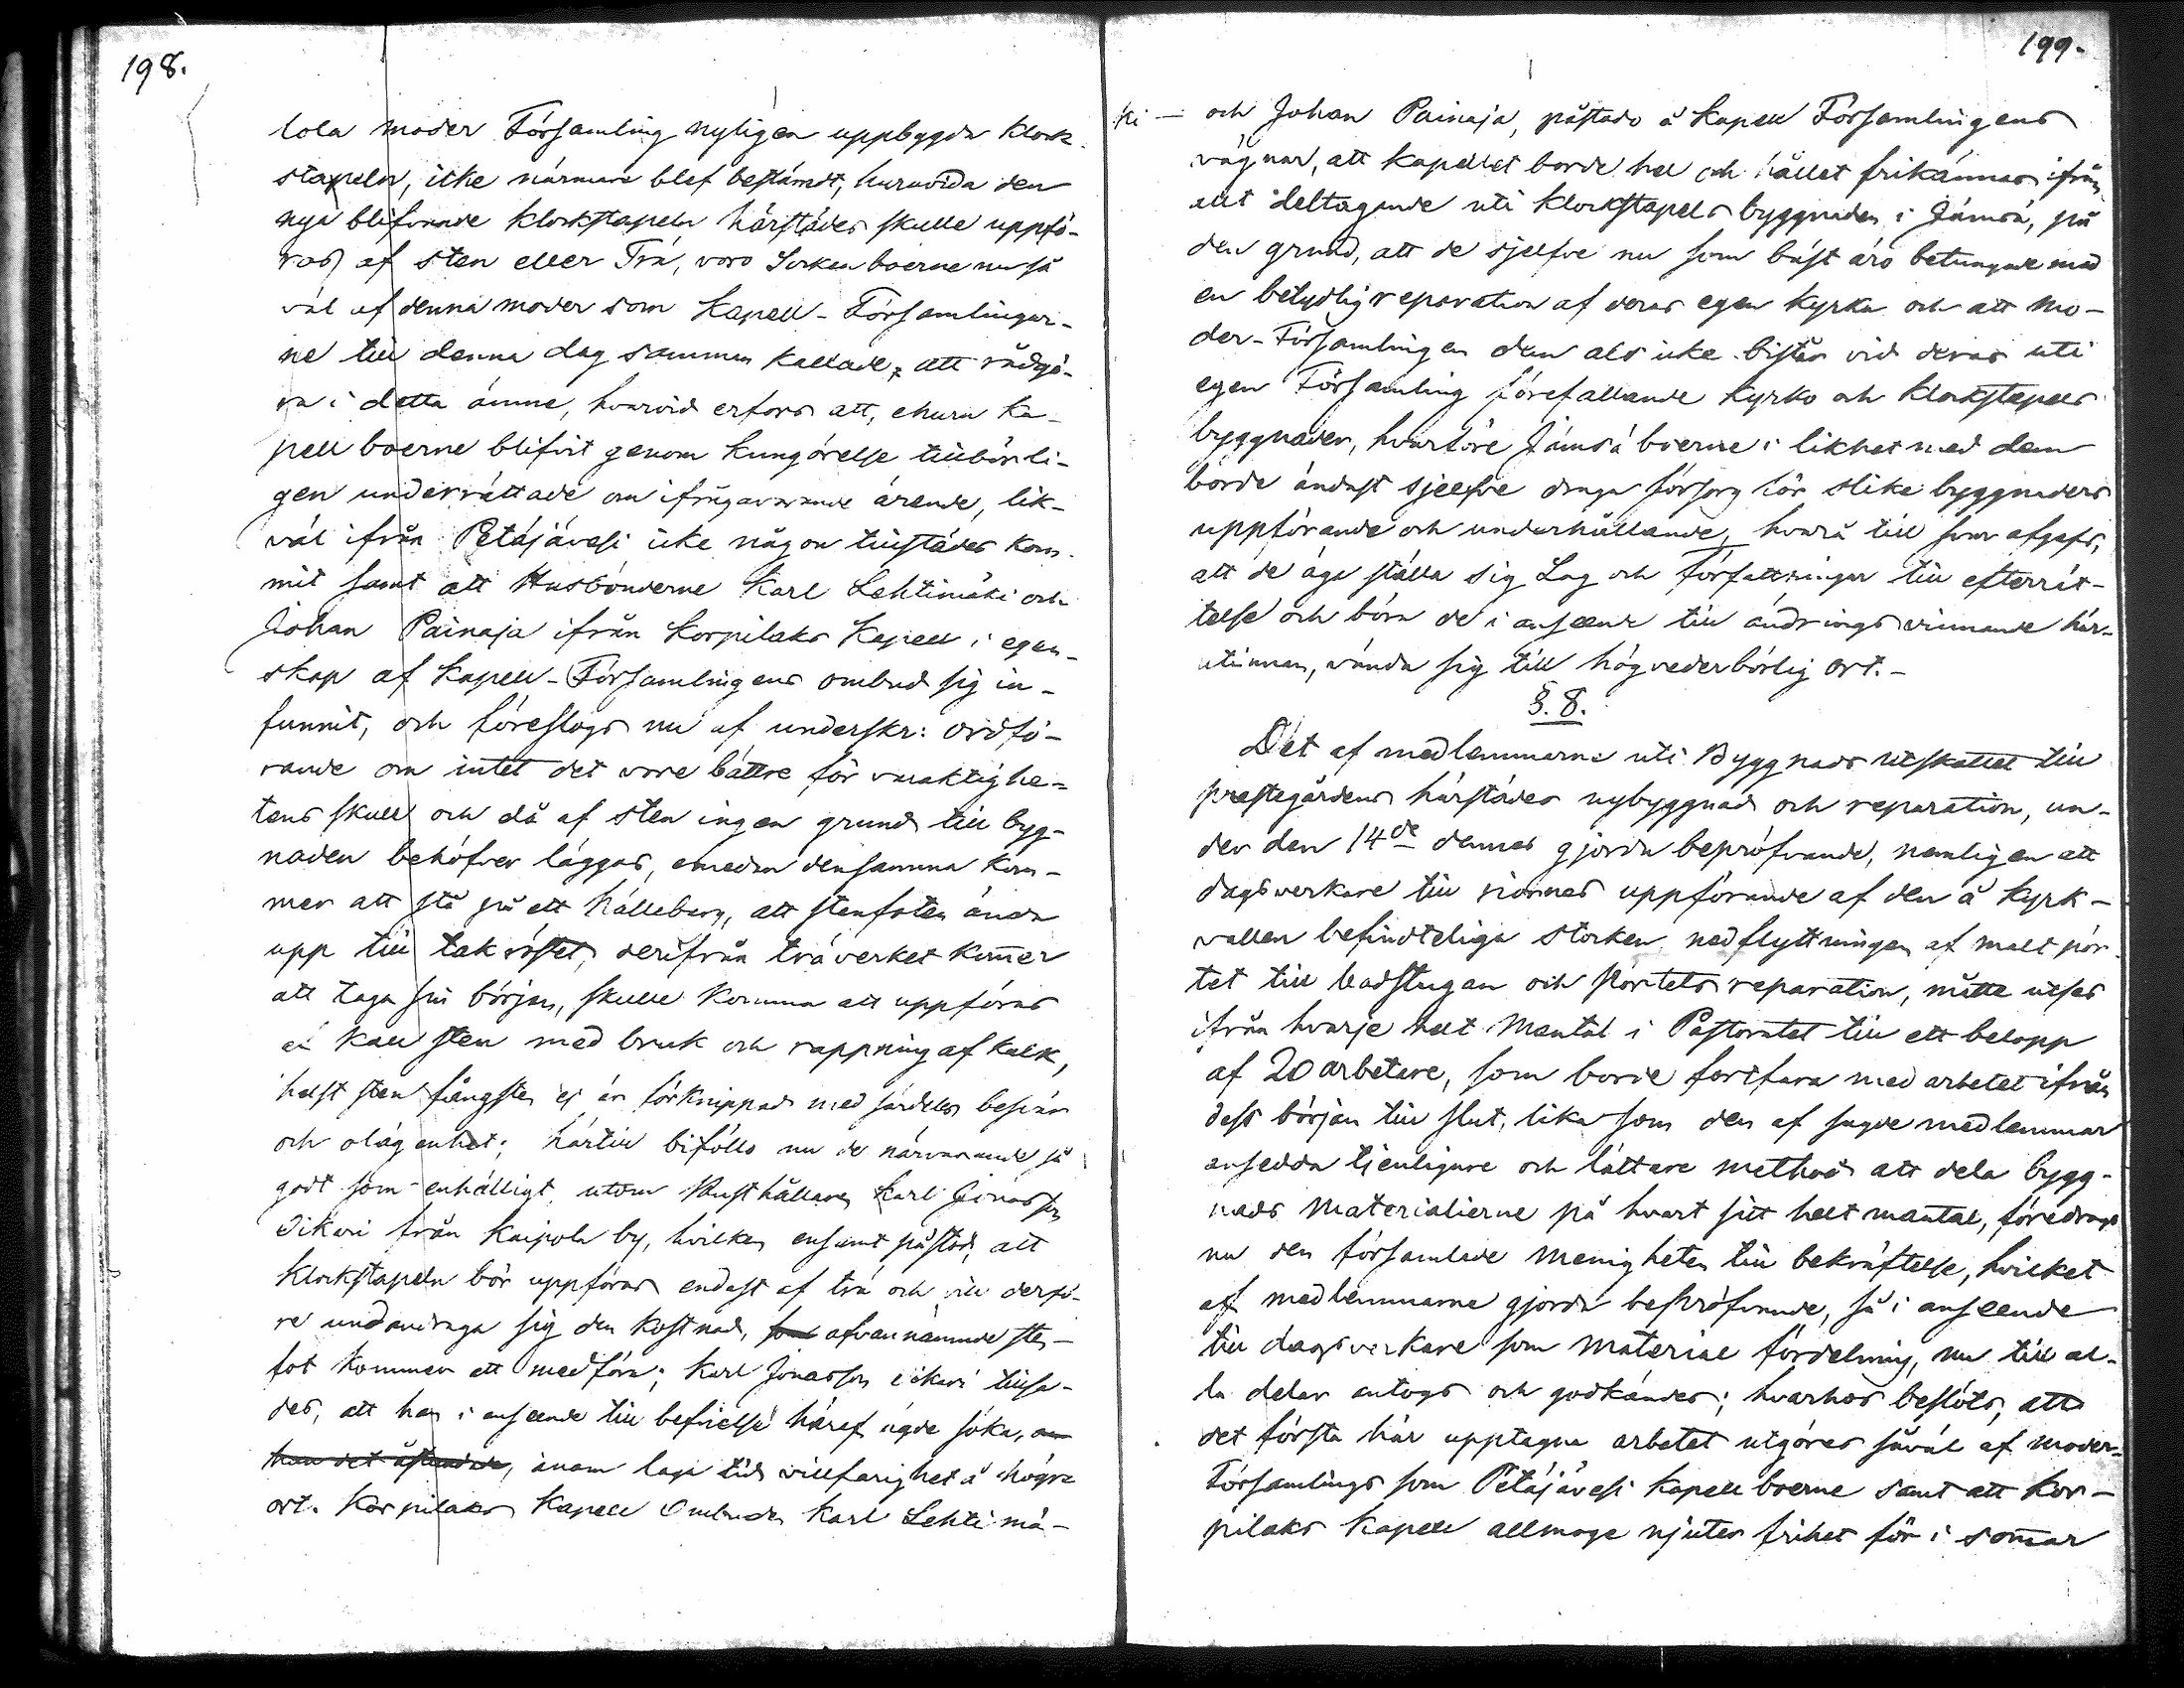 198.
lola moder Församling nyligen uppbygda klock
stapeln, icke närmare blef bestämdt, huruvida den
nya blifvande klockstapeln härstädes skulle uppfö-
ras af sten eller Trä, voro Sockenboerne nu så
väl af denna moder som Kapell-Församlingar-
ne till denna dag samman kallade, att rådgö-
ra i detta ämne, hvarvid erfors att, ehuru Ka-
pell boerne blifvit genom Kungörelse tillbörli-
gen underrättade om ifrågavarande ärende, lik-
väl ifrån Petäjävesi icke någon tillstädes kom-
mit samt att Husbönderne Karl Lehtimäki och
Johan Painaja ifrån Korpilaks Kapell i egen-
skap af Kapell-Församlingens ombud sig in-
funnit, och föreslogs nu af underskr: ordfö-
rande om intet det vore bättre för varaktighe-
tens skull och då af sten ingen grund till byg-
naden behöfver läggas, emedan densamma kom-
mer att stå på ett hälleberg, att stenfoten ända
upp till takröstet, derifrån träverket kom̄er
att taga sin början, skulle komma att uppföras
af kall sten med bruk och rappning af kalk,
helst sten fångsten ej är förknippad med särdeles besvär
och olägenhet; härtill biföllo nu de närvarande så
godt som enhälligt, utom Rusthållaren Karl Jonasson
Eikari från Kaipola by, hvilken ensamt påstod, att
Klockstapeln bör uppföras endast af trä och vill derfö-
re undandraga sig den kostnad, som afvannämnde sten-
fot kommer att medföra; Karl Jonasson Eikari tillsa-
des, att han i anseende till befrielse häraf ägde söka, om
han det åstundade, inom laga tid villfarighet å högre
ort. Korpilaks Kapell Ombuden Karl Lehtimä-
199.
ki - och Johan Painaja, påstodo å Kapell Församlingens
vägnar, att kapellet borde hel och hållet frikännas ifrån
allt deltagande uti klockstapels byggnaden i Jämsä, på
den grund, att de sjelfve nu som bäst äro betungade med
en betydlig reparation af deras egen kyrka och att mo-
der-Församlingen dem als icke bistår vid deras uti
egen Församling förefallande kyrko och klockstapels
byggnader, hvarföre Jämsä boerne i likhet med dem
borde ändast sjelfve draga försorg för slike byggnaders
uppförande och underhållande, hvarå till svar afgafs,
att de äga ställa sig Lag och författningar till efterrät-
telse och böra de i anseende till ändrings vinnande här-
utinnan, vända sig till högvederbörlig ort.-
§. 8.
Det af medlemmarne uti Byggnads Utskottet till
prestegårdens härstädes nybyggnad och reparation, un-
der den 14de dennes gjorda bepröfvande, nemligen att
dagsverkare till riornas uppförande af den å kyrk-
vallen befindteliga stocken, nedflyttningen af malt pör-
tet till badstugan och Pörtets reparation, måtte utses
ifrån hvarje helt Mantal i Pastoratet till ett belopp
af 20 arbetare, som borde fortfara med arbetet ifrån
dess början till slut, lika som den af sagde medlemmar
ansedda tjenligare och lättare method att dela bygg-
nads Materialierne på hvart sitt helt mantal, föredrogs
nu den församlade menigheten till bekräftelse, hvilket
af medlemmarne gjorda bepröfvande, så i anseende
till dagsverkare som Material fördelning, nu till al-
la delar antogs och godkändes; hvarhos beslöts, att
det första här upptagna arbetet utgöres såväl af moder-
Församlings som Petäjävesi Kapell boerne samt att Kor-
pilaks Kapell allmoge njuter frihet för i sommar